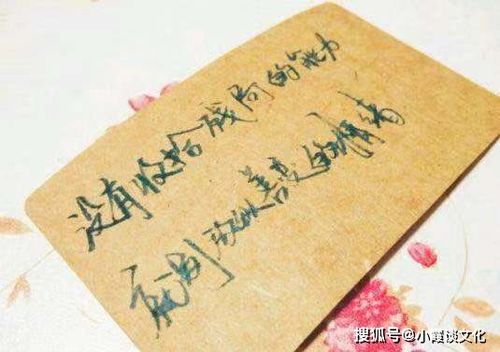 没有收拾残局的能力
就别放纵善变的情绪
搜狐号@小霞谈文化